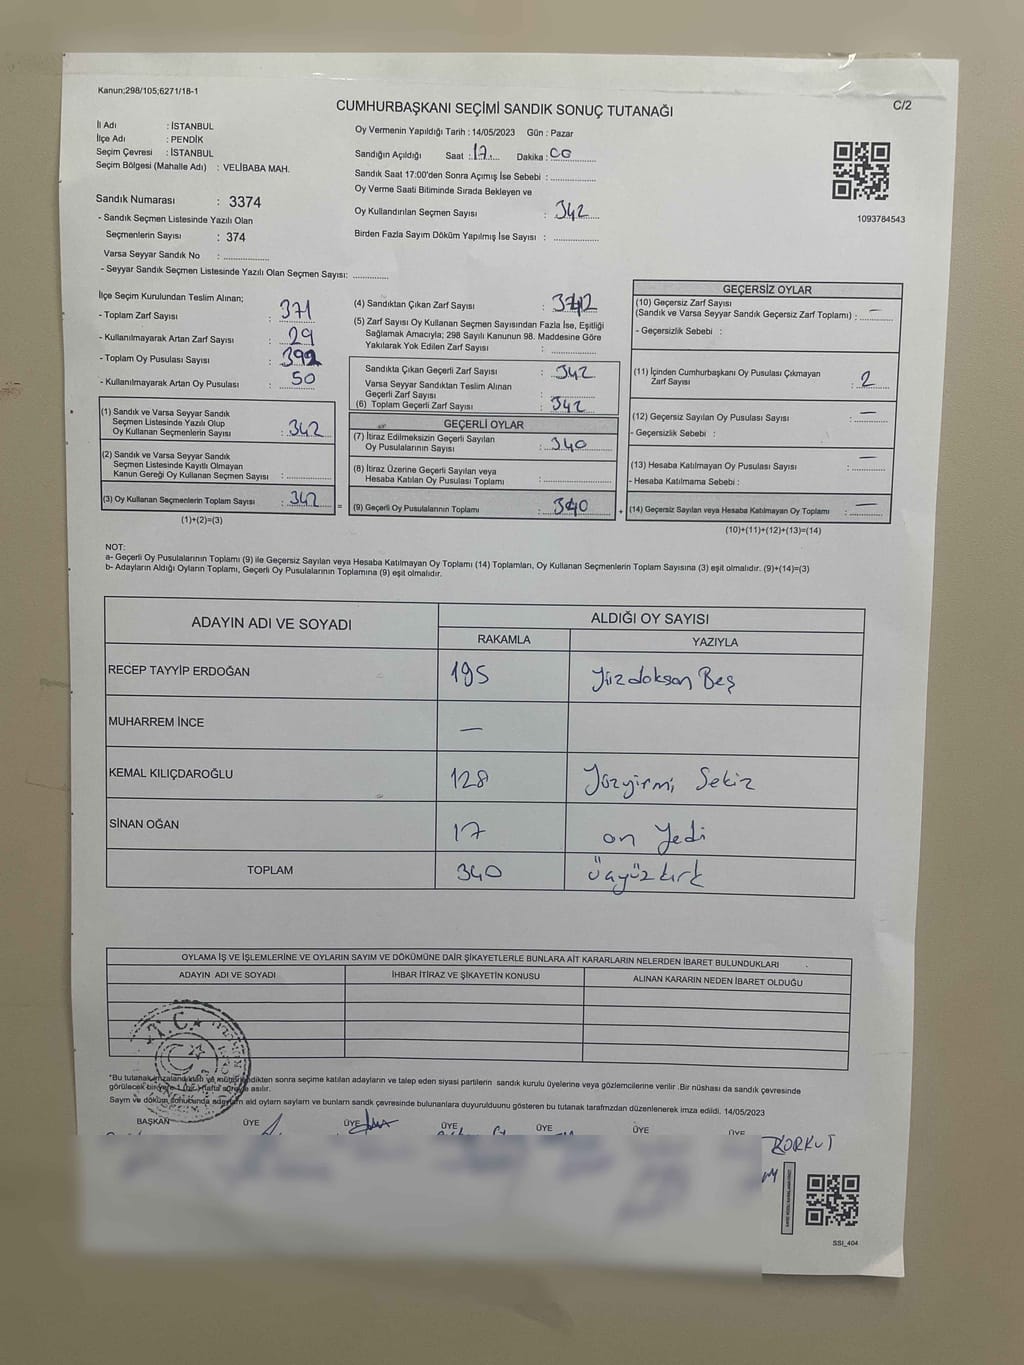 Kanun;298/105;6271/18-1
C/2
CUMHURBAŞKANI SEÇİMİ SANDIK SONUÇ TUTANAĞI
İl Adı : İSTANBUL
İlçe Adı : PENDİK
Seçim Çevresi : İSTANBUL
Seçim Bölgesi (Mahalle Adı) : VELİBABA MAH.
Sandık Numarası : 3374
- Sandık Seçmen Listesinde Yazılı Olan
Seçmenlerin Sayısı : 374
Varsa Seyyar Sandık No : ............
- Seyyar Sandık Seçmen Listesinde Yazılı Olan Seçmen Sayısı: ............
Oy Vermenin Yapıldığı Tarih : 14/05/2023 Gün : Pazar
Sandığın Açıldığı Saat : 17 Dakika : 00
Sandık Saat 17:00'den Sonra Açımış İse Sebebi : ............
Oy Verme Saati Bitiminde Sırada Bekleyen ve
Oy Kullandırılan Seçmen Sayısı : 342
Birden Fazla Sayım Döküm Yapılmış İse Sayısı : ............
1093784543
İlçe Seçim Kurulundan Teslim Alınan;
- Toplam Zarf Sayısı : 371
- Kullanılmayarak Artan Zarf Sayısı : 29
- Toplam Oy Pusulası Sayısı : 392
- Kullanılmayarak Artan Oy Pusulası : 50
(1) Sandık ve Varsa Seyyar Sandık
Seçmen Listesinde Yazılı Olup
Oy Kullanan Seçmenlerin Sayısı : 342
(2) Sandık ve Varsa Seyyar Sandık
Seçmen Listesinde Kayıtlı Olmayan
Kanun Gereği Oy Kullanan Seçmen Sayısı : ............
(3) Oy Kullanan Seçmenlerin Toplam Sayısı : 342
(1)+(2)=(3)
(4) Sandıktan Çıkan Zarf Sayısı : 342
(5) Zarf Sayısı Oy Kullanan Seçmen Sayısından Fazla İse, Eşitliği
Sağlamak Amacıyla; 298 Sayılı Kanunun 98. Maddesine Göre
Yakılarak Yok Edilen Zarf Sayısı : ............
Sandıkta Çıkan Geçerli Zarf Sayısı : 342
Varsa Seyyar Sandıktan Teslim Alınan
Geçerli Zarf Sayısı : ............
(6) Toplam Geçerli Zarf Sayısı : 342
GEÇERLİ OYLAR
(7) İtiraz Edilmeksizin Geçerli Sayılan
Oy Pusulalarının Sayısı : 340
(8) İtiraz Üzerine Geçerli Sayılan veya
Hesaba Katılan Oy Pusulası Toplamı : ............
= (9) Geçerli Oy Pusulalarının Toplamı : 340
GEÇERSİZ OYLAR
(10) Geçersiz Zarf Sayısı
(Sandık ve Varsa Seyyar Sandık Geçersiz Zarf Toplamı) : —
- Geçersizlik Sebebi :
(11) İçinden Cumhurbaşkanı Oy Pusulası Çıkmayan
Zarf Sayısı : 2
(12) Geçersiz Sayılan Oy Pusulası Sayısı : —
- Geçersizlik Sebebi :
(13) Hesaba Katılmayan Oy Pusulası Sayısı : —
- Hesaba Katılmama Sebebi :
+ (14) Geçersiz Sayılan veya Hesaba Katılmayan Oy Toplamı : —
(10)+(11)+(12)+(13)=(14)
NOT:
a- Geçerli Oy Pusulalarının Toplamı (9) ile Geçersiz Sayılan veya Hesaba Katılmayan Oy Toplamı (14) Toplamları, Oy Kullanan Seçmenlerin Toplam Sayısına (3) eşit olmalıdır. (9)+(14)=(3)
b- Adayların Aldığı Oyların Toplamı, Geçerli Oy Pusulalarının Toplamına (9) eşit olmalıdır.
ADAYIN ADI VE SOYADI ALDIĞI OY SAYISI
RAKAMLA YAZIYLA
RECEP TAYYİP ERDOĞAN 195 Yüzdoksan Beş
MUHARREM İNCE —
KEMAL KILIÇDAROĞLU 128 Yüzyirmi Sekiz
SİNAN OĞAN 17 on Yedi
TOPLAM 340 Üçyüzkırk
OYLAMA İŞ VE İŞLEMLERİNE VE OYLARIN SAYIM VE DÖKÜMÜNE DAİR ŞİKAYETLERLE BUNLARA AİT KARARLARIN NELERDEN İBARET BULUNDUKLARI
ADAYIN ADI VE SOYADI İHBAR İTİRAZ VE ŞİKAYETİN KONUSU ALINAN KARARIN NEDEN İBARET OLDUĞU
T.C.
*Bu tutanak imzalandıktan ve mühürlendikten sonra seçime katılan adayların ve talep eden siyasi partilerin sandık kurulu üyelerine veya gözlemcilerine verilir .Bir nüshası da sandık çevresinde
görülecek bir yere 1 (bir) hafta süreyle asılır.
Sayım ve döküm sonucunda adayların ald oyların sayların ve bunların sandık çevresinde bulunanlara duyurulduunu gösteren bu tutanak tarafımzdan düzenlenerek imza edildi. 14/05/2023
BAŞKAN ÜYE ÜYE ÜYE ÜYE ÜYE ÜYE
KORKUT
SSI_404